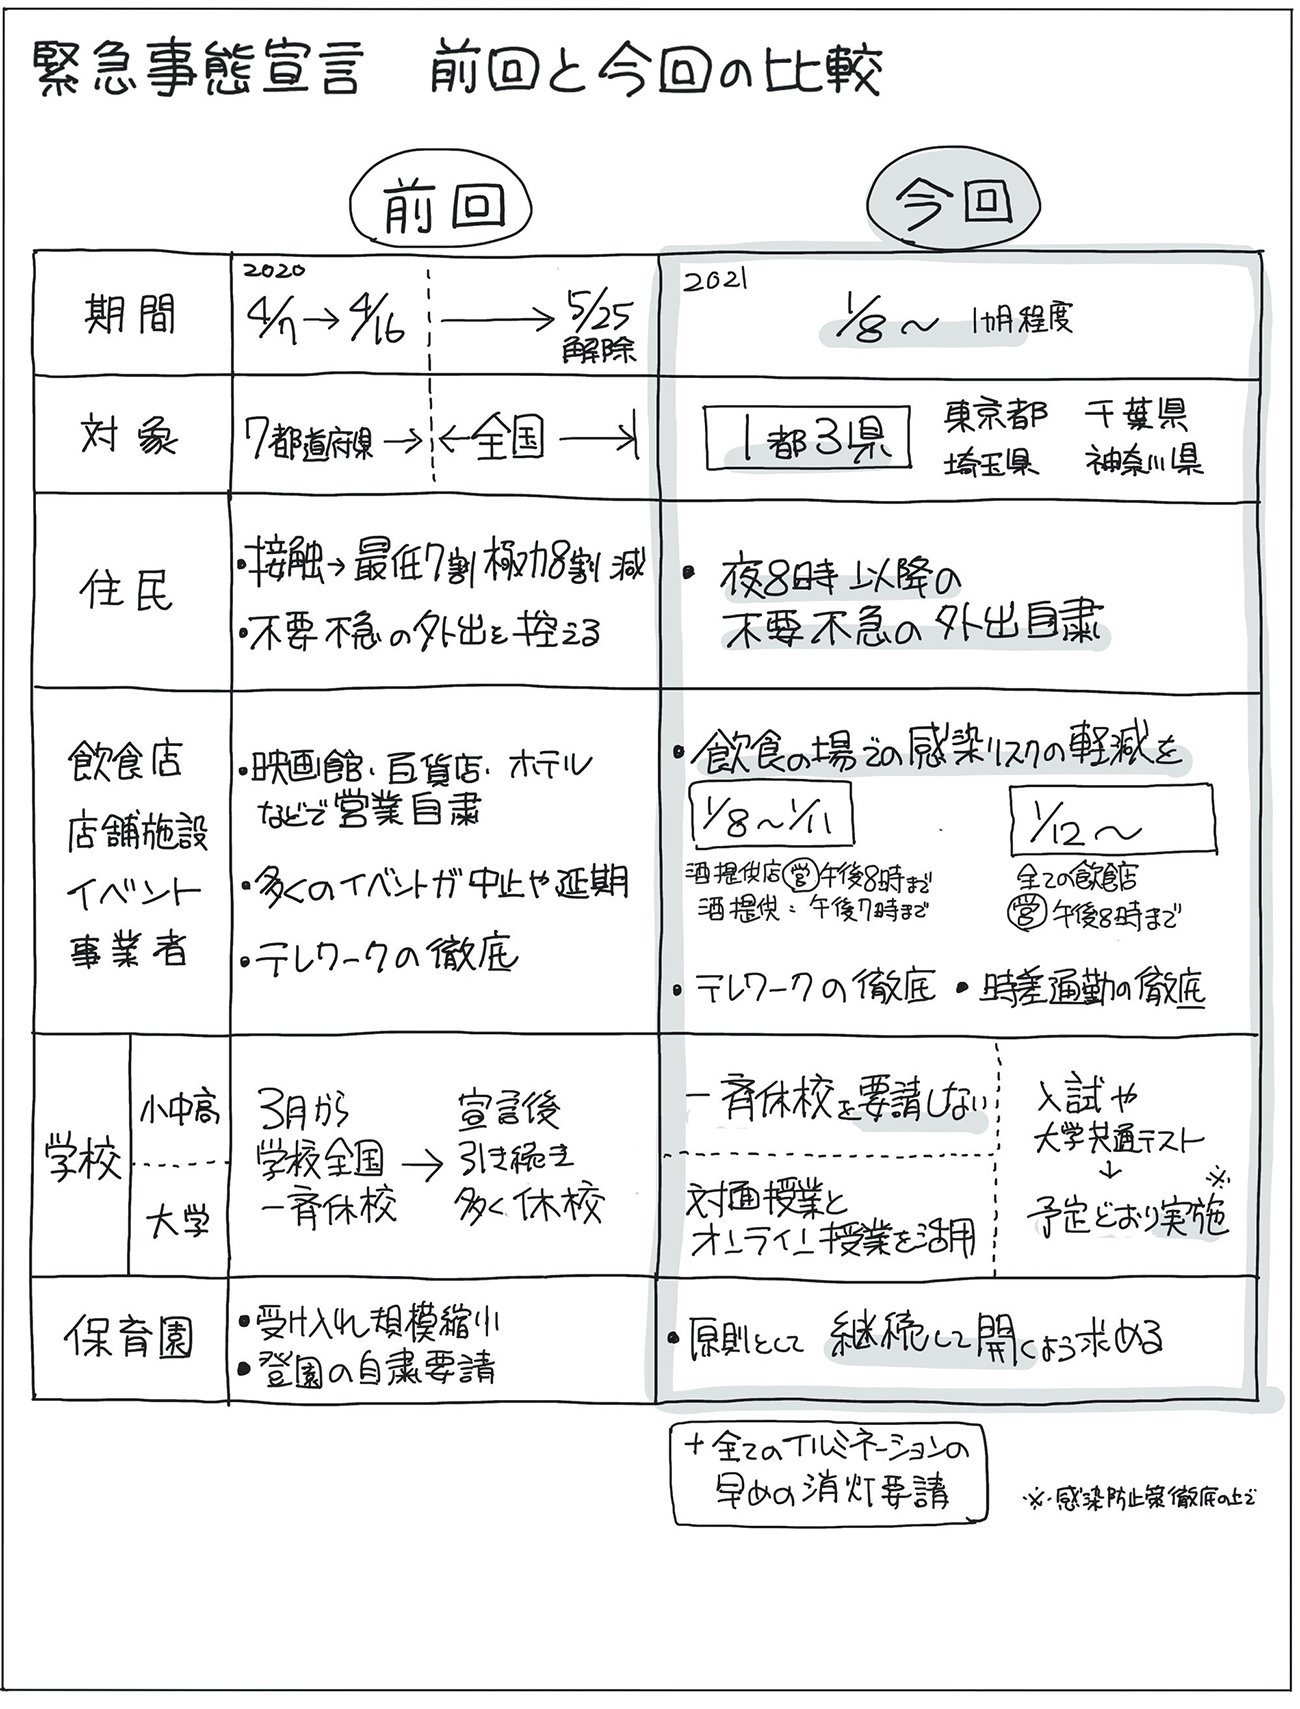 緊急事態宣言 前回と今回の比較
前回
今回
期間
2020
4/7→4/16
→
5/25
解除
2021
1/8～ 1カ月程度
対象
7都道府県→
←全国→
1都3県
東京都 千葉県
埼玉県 神奈川県
住民
・接触→最低7割極力8割減
・不要不急の外出を控える
・夜8時以降の
不要不急の外出自粛
飲食店
店舗施設
イベント
事業者
・映画館・百貨店・ホテル
などで営業自粛
・多くのイベントが中止や延期
・テレワークの徹底
・飲食の場での感染リスクの軽減を
1/8～1/11
酒提供店 営 午後8時まで
酒提供：午後7時まで
1/12～
全ての飲食店
営 午後8時まで
・テレワークの徹底 ・時差通勤の徹底
学校
小中高
大学
3月から
学校全国
一斉休校
→
宣言後
引き続き
多く休校
一斉休校を要請しない
対面授業と
オンライン授業を活用
入試や
大学共通テスト
↓
予定どおり実施※
保育園
・受け入れ規模縮小
・登園の自粛要請
・原則として 継続して開くよう求める
+全てのイルミネーションの
早めの消灯要請
※感染防止策徹底の上で